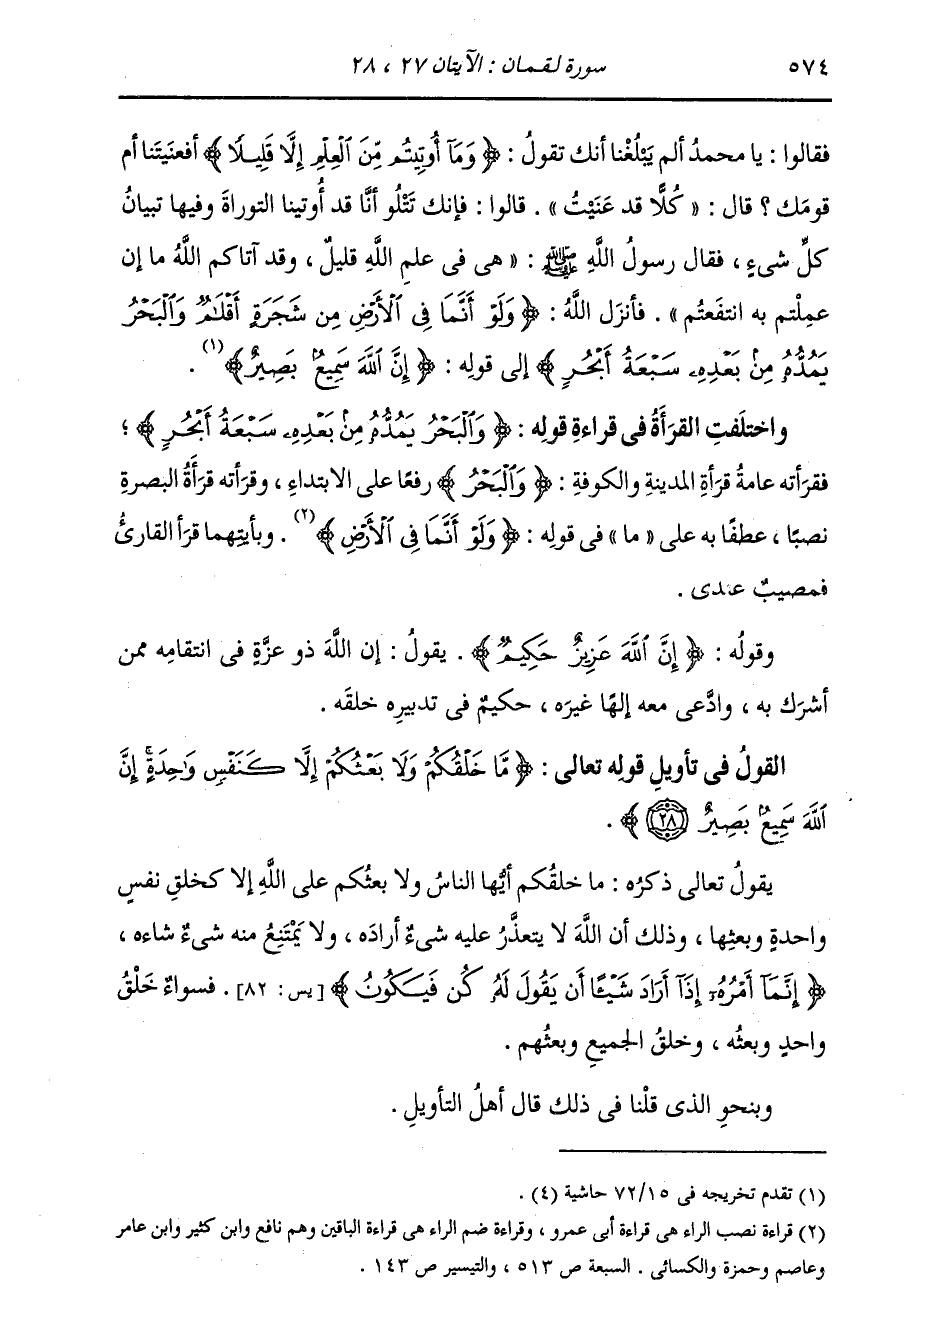 ٥٧٤ سورة لقمان : الآيتان ٢٧ ، ٢٨
فقالوا : يا محمدُ ألم يَبْلُغْنا أنك تقولُ : ﴿ وَمَآ أُوتِيتُم مِّنَ ٱلْعِلْمِ إِلَّا قَلِيلًا ﴾ أفعنَيتَنا أم
قومَك ؟ قال : « كُلًّا قد عَنَيْتُ » . قالوا : فإنك تَتْلُو أنَّا قد أُوتينا التوراةَ وفيها تبيانُ
كلِّ شىءٍ ، فقال رسولُ اللَّهِ ﷺ : « هى فى علمِ اللَّهِ قليلٌ ، وقد آتاكم اللَّهُ ما إن
عمِلْتم به انتفَعتُم » . فأنزَل اللَّهُ : ﴿ وَلَوْ أَنَّمَا فِى ٱلْأَرْضِ مِن شَجَرَةٍ أَقْلَٰمٌ وَٱلْبَحْرُ
يَمُدُّهُۥ مِنۢ بَعْدِهِۦ سَبْعَةُ أَبْحُرٍ ﴾ إلى قولِه : ﴿ إِنَّ ٱللَّهَ سَمِيعٌۢ بَصِيرٌ ﴾(١) .
واختلَفتِ القرَأَةُ فى قراءةِ قولِه : ﴿ وَٱلْبَحْرُ يَمُدُّهُۥ مِنۢ بَعْدِهِۦ سَبْعَةُ أَبْحُرٍ ﴾ ؛
فقرَأته عامةُ قرَأةِ المدينةِ والكوفةِ : ﴿ وَٱلْبَحْرُ ﴾ رفعًا على الابتداءِ ، وقرَأته قرَأَةُ البصرةِ
نصبًا ، عطفًا به على « ما » فى قولِه : ﴿ وَلَوْ أَنَّمَا فِى ٱلْأَرْضِ ﴾(٢) . وبأيتِهما قرَأ القارئُ
فمصيبٌ عندى .
وقولُه : ﴿ إِنَّ ٱللَّهَ عَزِيزٌ حَكِيمٌ ﴾ . يقولُ : إن اللَّهَ ذو عزَّةٍ فى انتقامِه ممن
أشرَك به ، وادَّعى معه إلهًا غيرَه ، حكيمٌ فى تدبيرِه خلقَه .
القولُ فى تأويلِ قولِه تعالى : ﴿ مَّا خَلْقُكُمْ وَلَا بَعْثُكُمْ إِلَّا كَنَفْسٍ وَٰحِدَةٍ ۗ إِنَّ
ٱللَّهَ سَمِيعٌۢ بَصِيرٌ ٢٨ ﴾ .
يقولُ تعالى ذكرُه : ما خلقُكم أيُّها الناسُ ولا بعثُكم على اللَّهِ إلا كخلقِ نفسٍ
واحدةٍ وبعثِها ، وذلك أن اللَّهَ لا يتعذَّرُ عليه شىءٌ أرادَه ، ولا يَمْتَنِعُ منه شىءٌ شاءه ،
﴿ إِنَّمَآ أَمْرُهُۥٓ إِذَآ أَرَادَ شَيْـًٔا أَن يَقُولَ لَهُۥ كُن فَيَكُونُ ﴾ [يس: ٨٢] . فسواءٌ خَلْقُ
واحدٍ وبعثُه ، وخلقُ الجميعِ وبعثُهم .
وبنحوِ الذى قلْنا فى ذلك قال أهلُ التأويلِ .
(١) تقدم تخريجه فى ٧٢/١٥ حاشية (٤) .
(٢) قراءة نصب الراء هى قراءة أبى عمرو ، وقراءة ضم الراء هى قراءة الباقين وهم نافع وابن كثير وابن عامر
وعاصم وحمزة والكسائى . السبعة ص ٥١٣ ، والتيسير ص ١٤٣ .